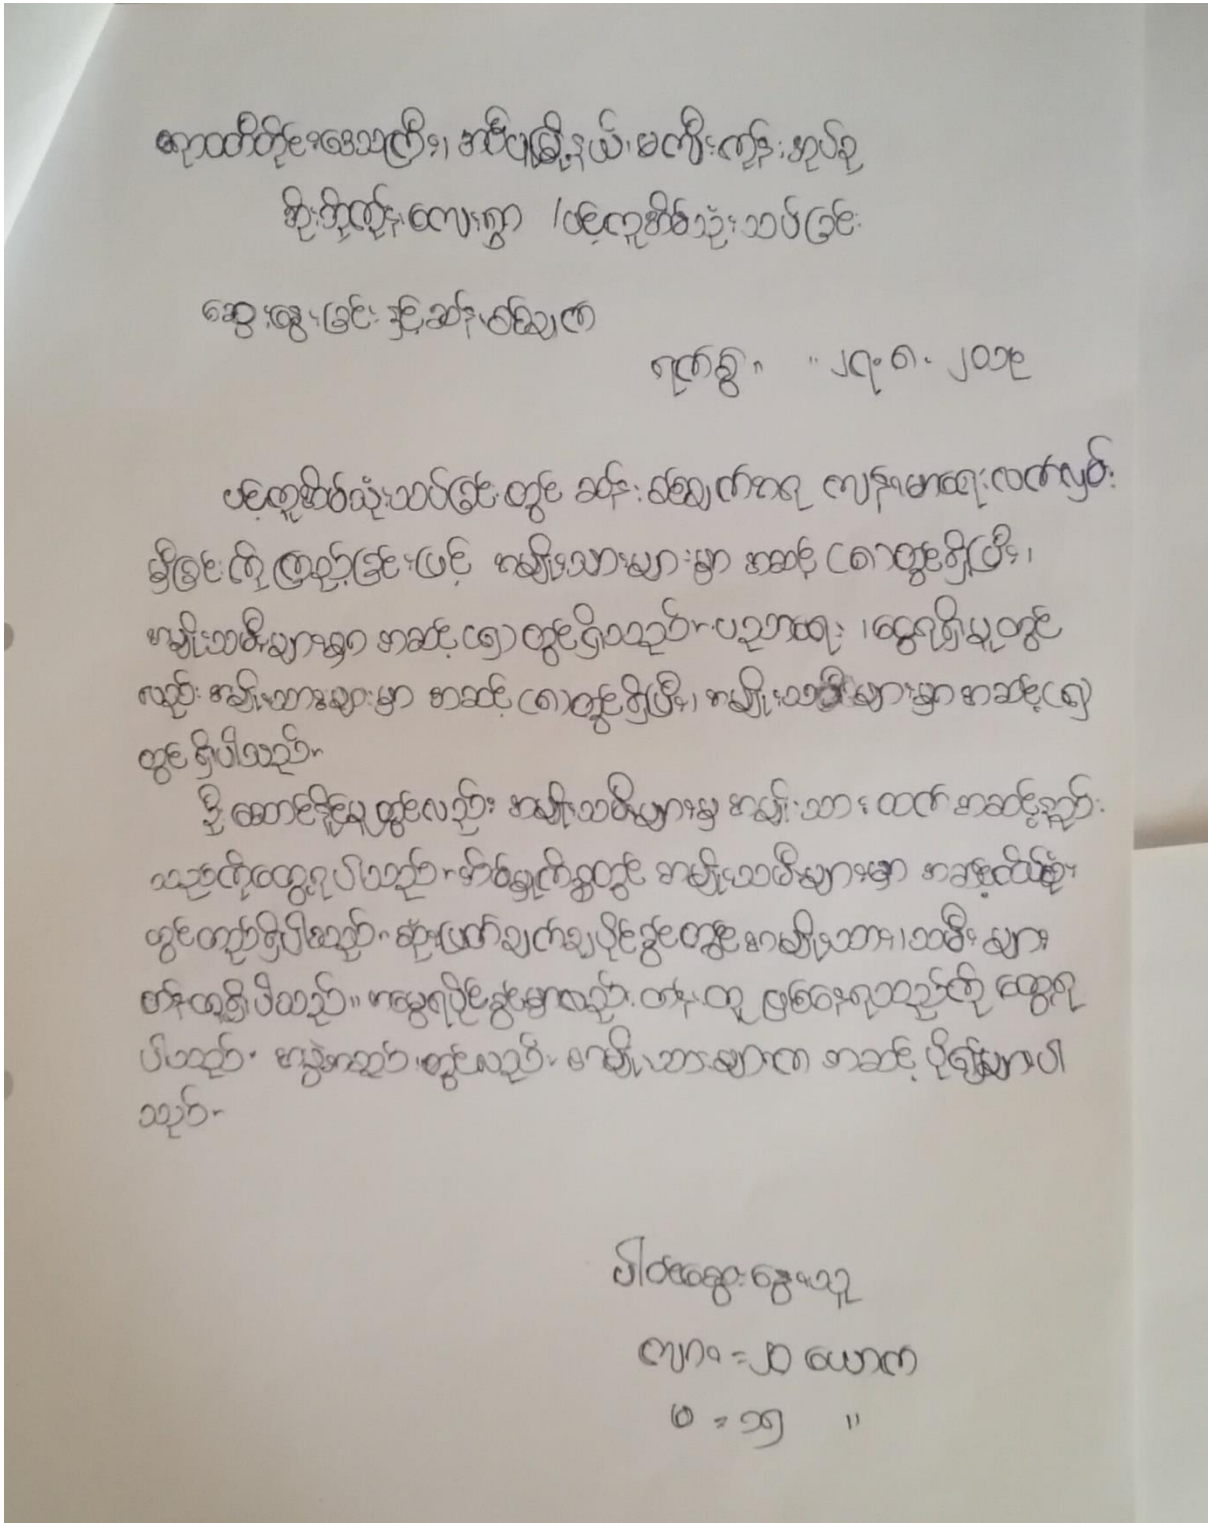 ဧရာဝတီတိုင်းဒေသကြီး၊ အင်္ဂပူမြို့နယ်၊ မကျီးကုန်း အုပ်စု
အိုးဘိုကုန်းကျေးရွာ /ပင့်ကူအိမ်သုံးသပ်ခြင်း
ဆွေးနွေးခြင်း နှင့် ဆန်းစစ်ချက်
ရက်စွဲ။ ။ ၂၇.၈.၂၀၁၉
ပင့်ကူအိမ်သုံးသပ်ခြင်းတွင် ဆန်းစစ်ချက်အရ ကျန်းမာရေးလက်လှမ်း
မှီခြင်းကို ကြည့်ခြင်းဖြင့် အမျိုးသားများမှာ အဆင့် (၈)တွင်ရှိပြီး၊
အမျိုးသမီးများမှာ အဆင့်(၅)တွင်ရှိသည်။ ပညာရေး ၊ငွေရရှိမှုတွင်
လည်း အမျိုးသားများမှာ အဆင့် (၈)တွင်ရှိပြီး၊ အမျိုးသမီးများမှာ အဆင့်(၅)
တွင် ရှိပါသည်။
ဦးဆောင်နိုင်မှုတွင်လည်း အမျိုးသမီးများမှ အမျိုးသား ထက် အဆင့်နည်း
သည်ကိုတွေ့ရပါသည်။ အိမ်ရှုကိစ္စတွင် အမျိုးသမီးများမှာ အဆင့်ထိပ်ဆုံး
တွင်တည်ရှိပါသည်။ ဆုံးဖြတ်ချက်ချပိုင်ခွင့်တွင် အမျိုးသား၊သမီး များ
တန်းတူရှိပါသည်။ အမွေရပိုင်ခွင့်မှာလည်း တန်းတူ ဖြစ်နေရသည်ကို တွေ့ရ
ပါသည်။ အဖွဲ့အစည်းတွင်လည်း အမျိုးသားများက အဆင့် ပို၍များပါ
သည်။
ပါဝင်ဆွေးနွေးသူ
ကျား = ၂၀ ယောက်
မ = ၁၅ "